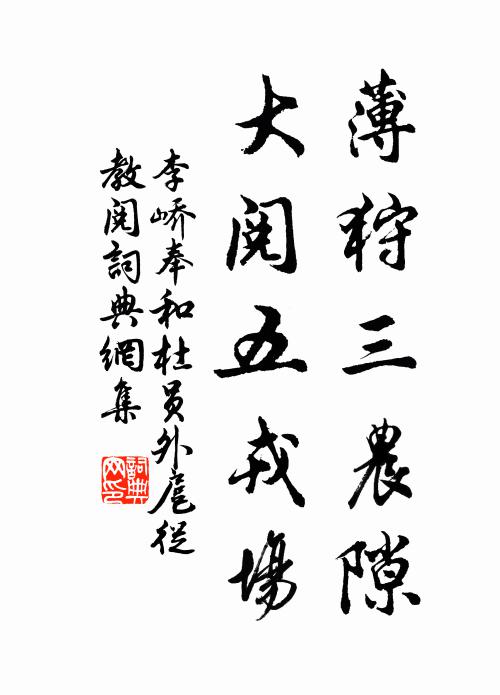 薄狩三農隙
大閱五戎場
李嶠奉和杜員外扈從
教閱詞典網集
詞典網印